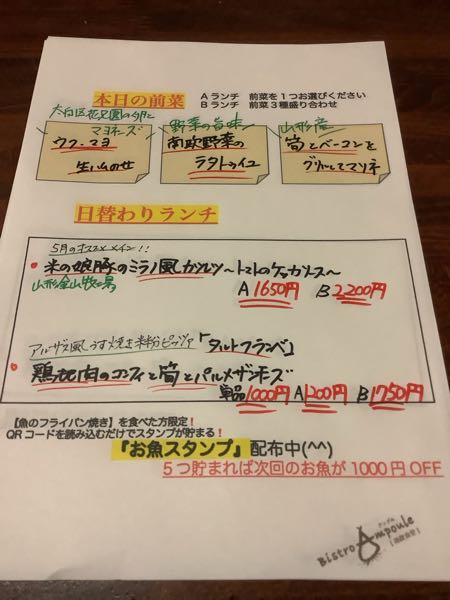 本日の前菜
Aランチ 前菜を1つお選びください
Bランチ 前菜3種盛り合わせ
太白区花兄園の卵と
マヨネーズ
ウフ・マヨ
生ハムのせ
野菜の旨味
南欧野菜の
ラタトゥイユ
山形産
筍とベーコンを
グリルしてマリネ
日替わりランチ
5月のオススメメイン!!
米の娘豚のミラノ風カツレツ〜トマトのケッカソース〜
山形金山牧場
A 1650円 B 2,200円
アルザス風うす焼き米粉ピッツァ「タルトフランベ」
鶏もも肉のコンフィと筍とパルメザンチーズ
単品1000円 A1200円 B1750円
【魚のフライパン焼き】を食べた方限定!
QRコードを読み込むだけでスタンプが貯まる!
『お魚スタンプ』配布中(^^)
5つ貯まれば次回のお魚が1000円OFF
アンプル
Bistro Ampoule